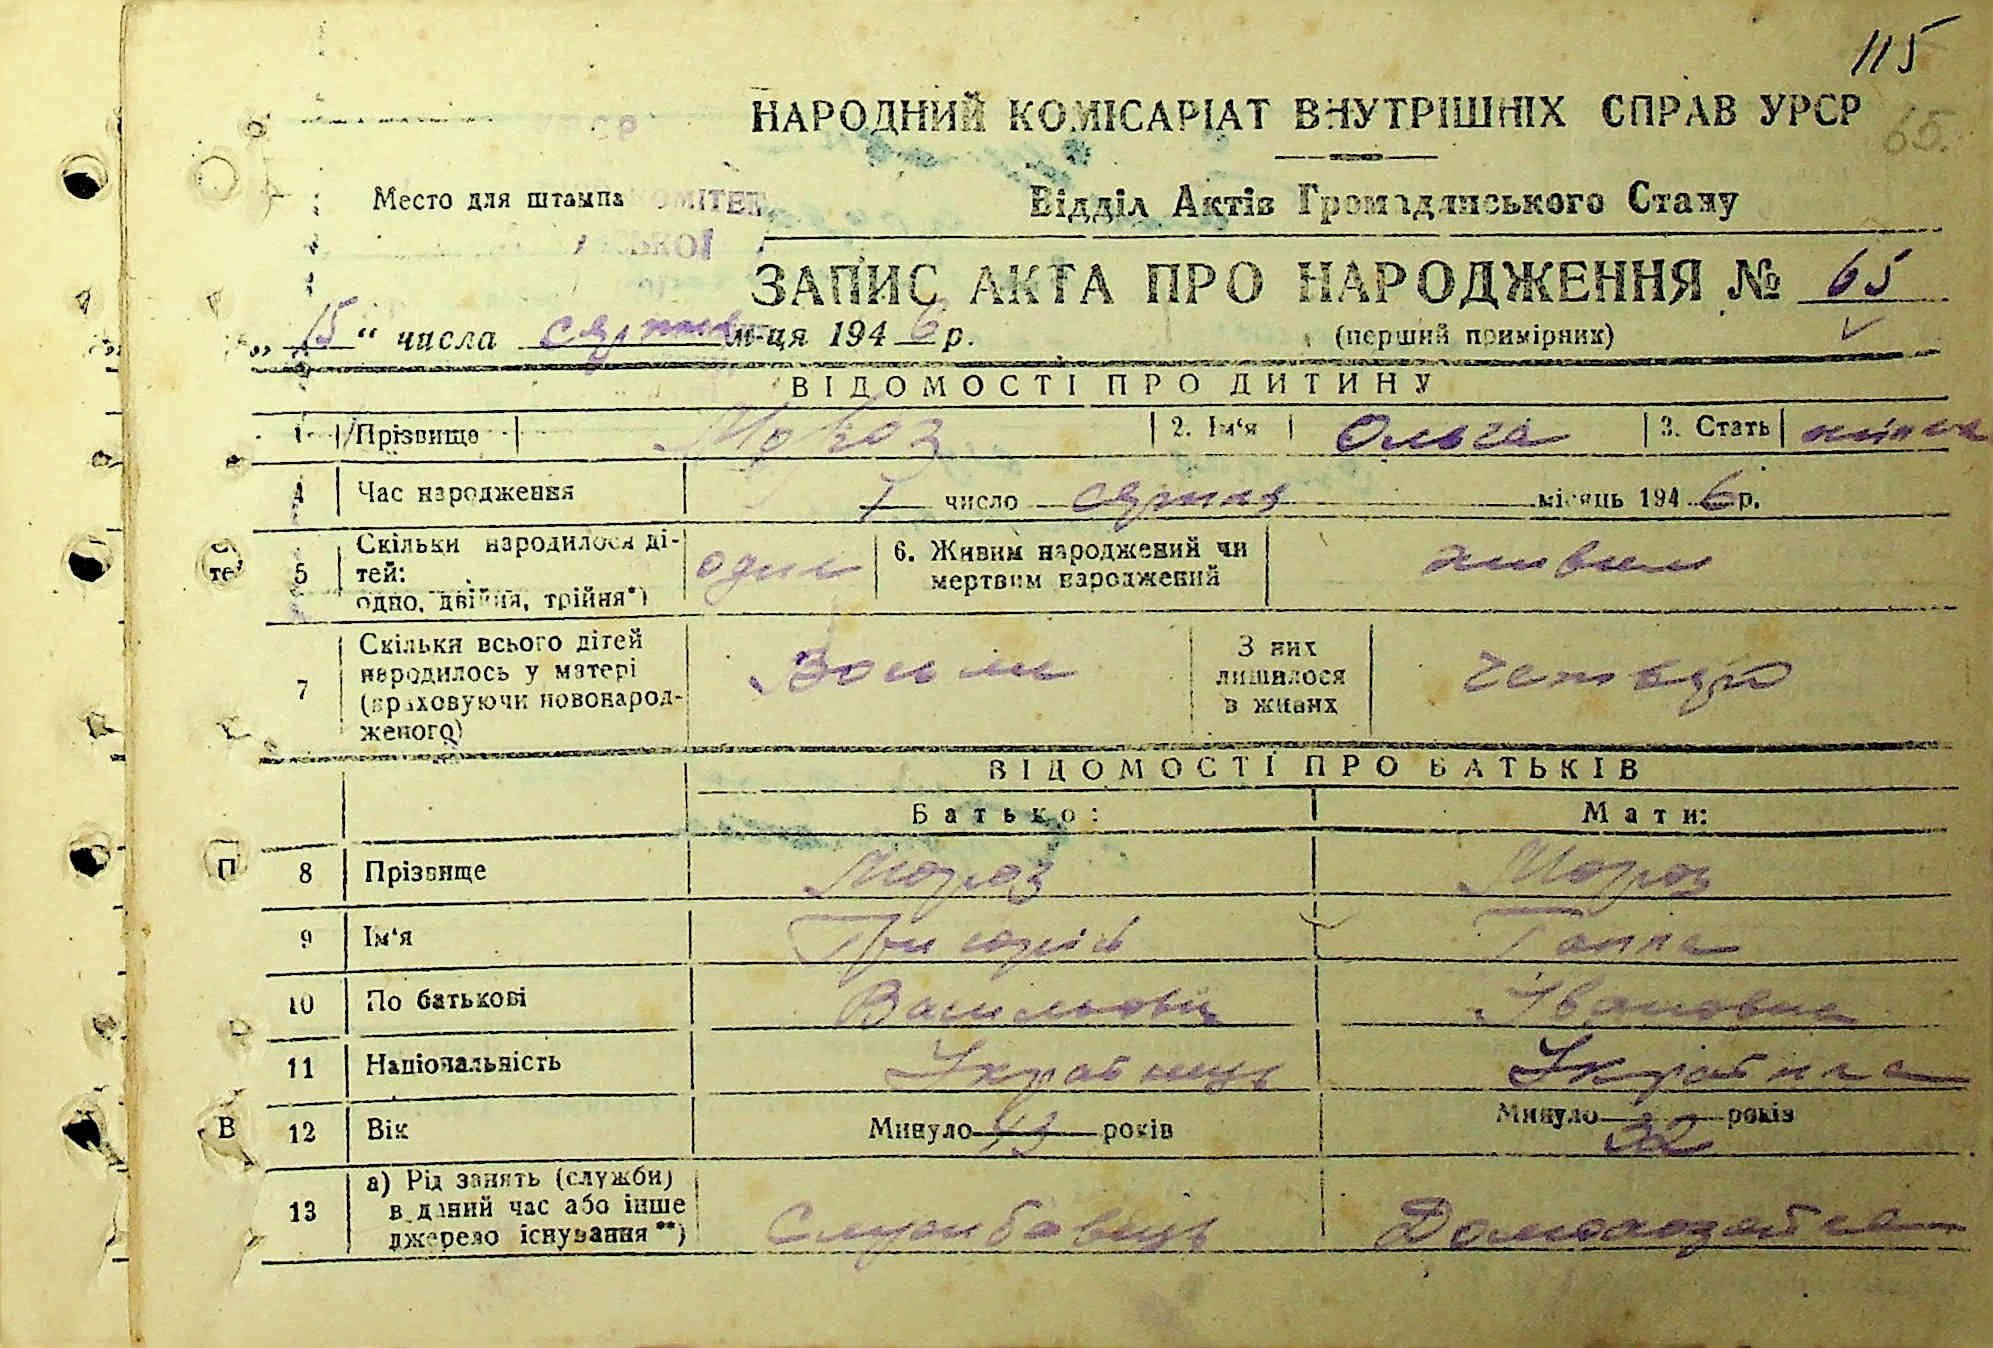 115
НАРОДНИЙ КОМІСАРІАТ ВНУТРІШНІХ СПРАВ УРСР
65.
Место для штампа
Відділ Актів Громадянського Стану
ЗАПИС АКТА ПРО НАРОДЖЕННЯ № 65
„15“ числа серпня м-ця 1946 р.
(перший примірник)
ВІДОМОСТІ ПРО ДИТИНУ
1 Прізвище Мороз 2. Ім'я Ольга 3. Стать жіноча
4 Час народження 1 число серпня місяць 1946 р.
5 Скільки народилося дітей: одно, двійня, трійня*) одне 6. Живим народжений чи мертвим народжений живим
7 Скільки всього дітей народилось у матері (враховуючи новонародженого) З них лишилося в живих четверо
ВІДОМОСТІ ПРО БАТЬКІВ
Батько: Мати:
8 Прізвище Мороз Мороз
9 Ім'я Григорій Ганна
10 По батькові Васильович Івановна
11 Національність Українець Українка
12 Вік Минуло 43 років Минуло 32 років
13 а) Рід занять (служби) в даний час або інше джерело існування**) Службовець Домохазяйка